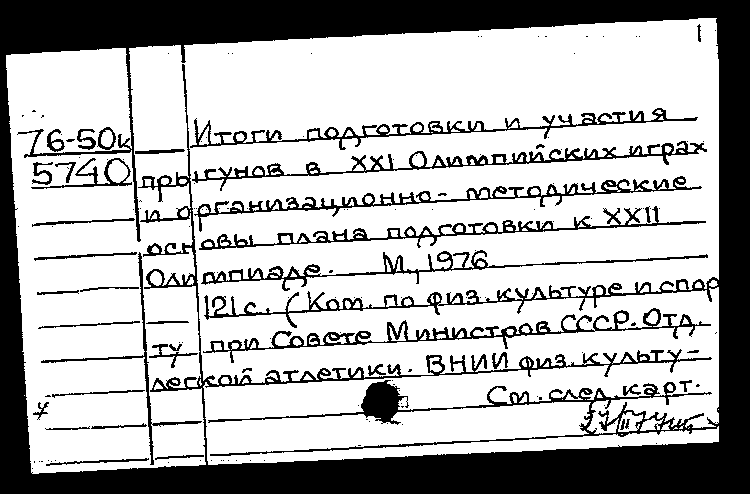 1
76-50к
5740
Итоги подготовки и участия
прыгунов в XXI Олимпийских играх
и организационно-методические
основы плана подготовки к XXII
Олимпиаде. М., 1976
121с. (Ком. по физ. культуре и спор
ту при Совете Министров СССР. Отд.
легкой атлетики. ВНИИ физ. культу-
См. след. карт.